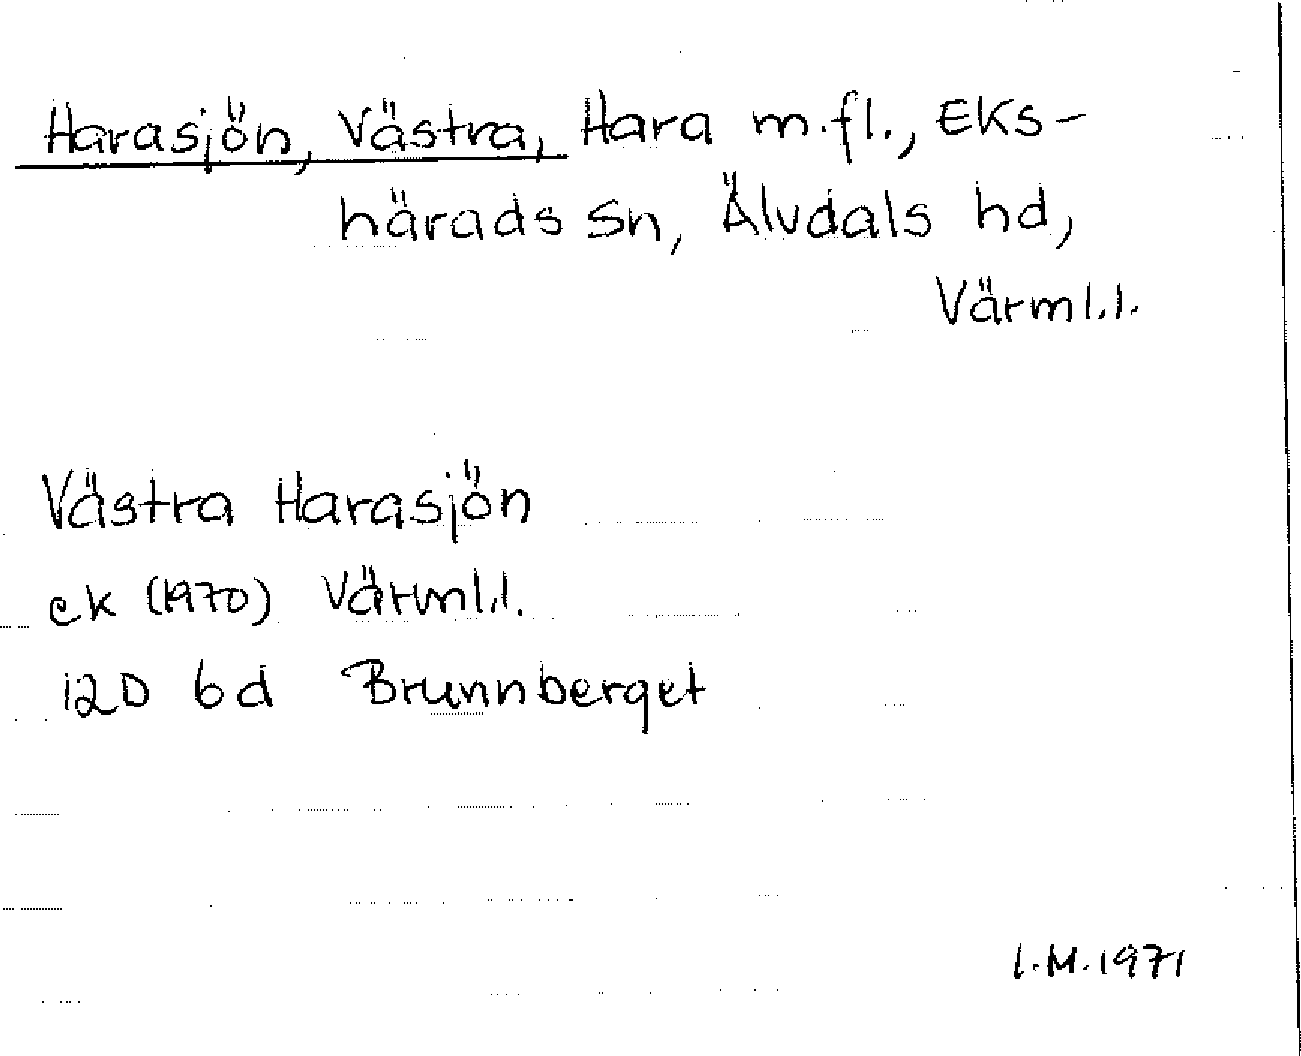 Harasjön, Västra, Hara m.fl., Eks-
härads sn, Älvdals hd,
Värml.l.
Västra Harasjön
ek (1970) Värml.l.
12D 6d Brunnberget
I.M.1971